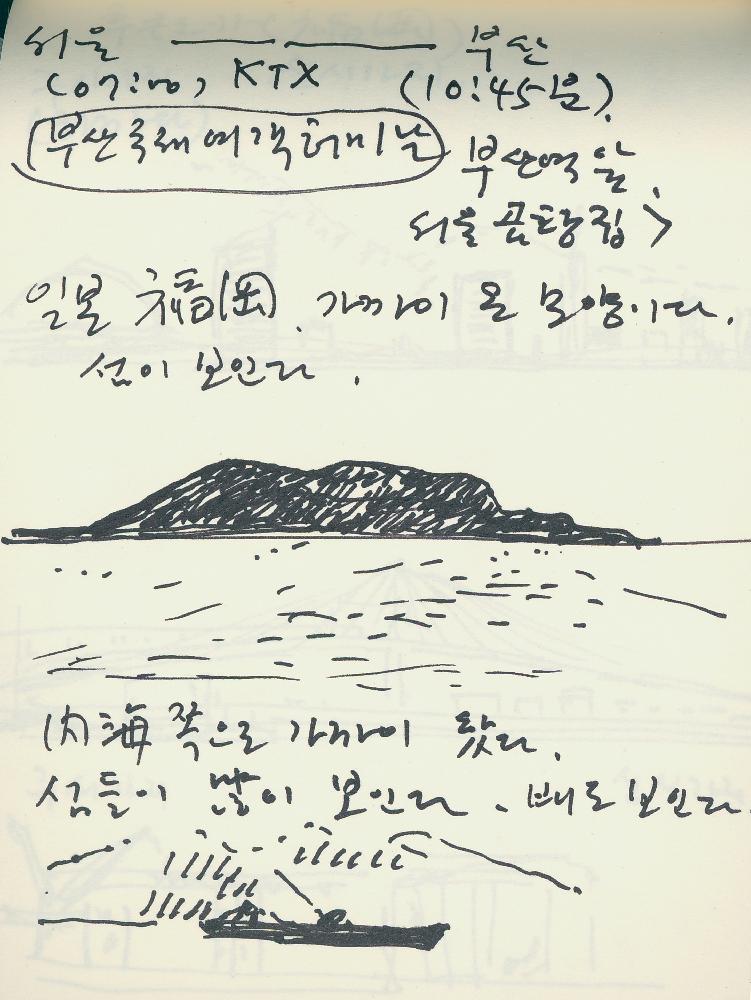 서울 부산
KTX (10:45분).
부산국제여객터미날 부산역 앞.
서울 곰탕집>
일본 福岡. 가까이 온 모양이다.
섬이 보인다.
內海쪽으로 가까이 왔다.
섬들이 많이 보인다. 배도 보인다.